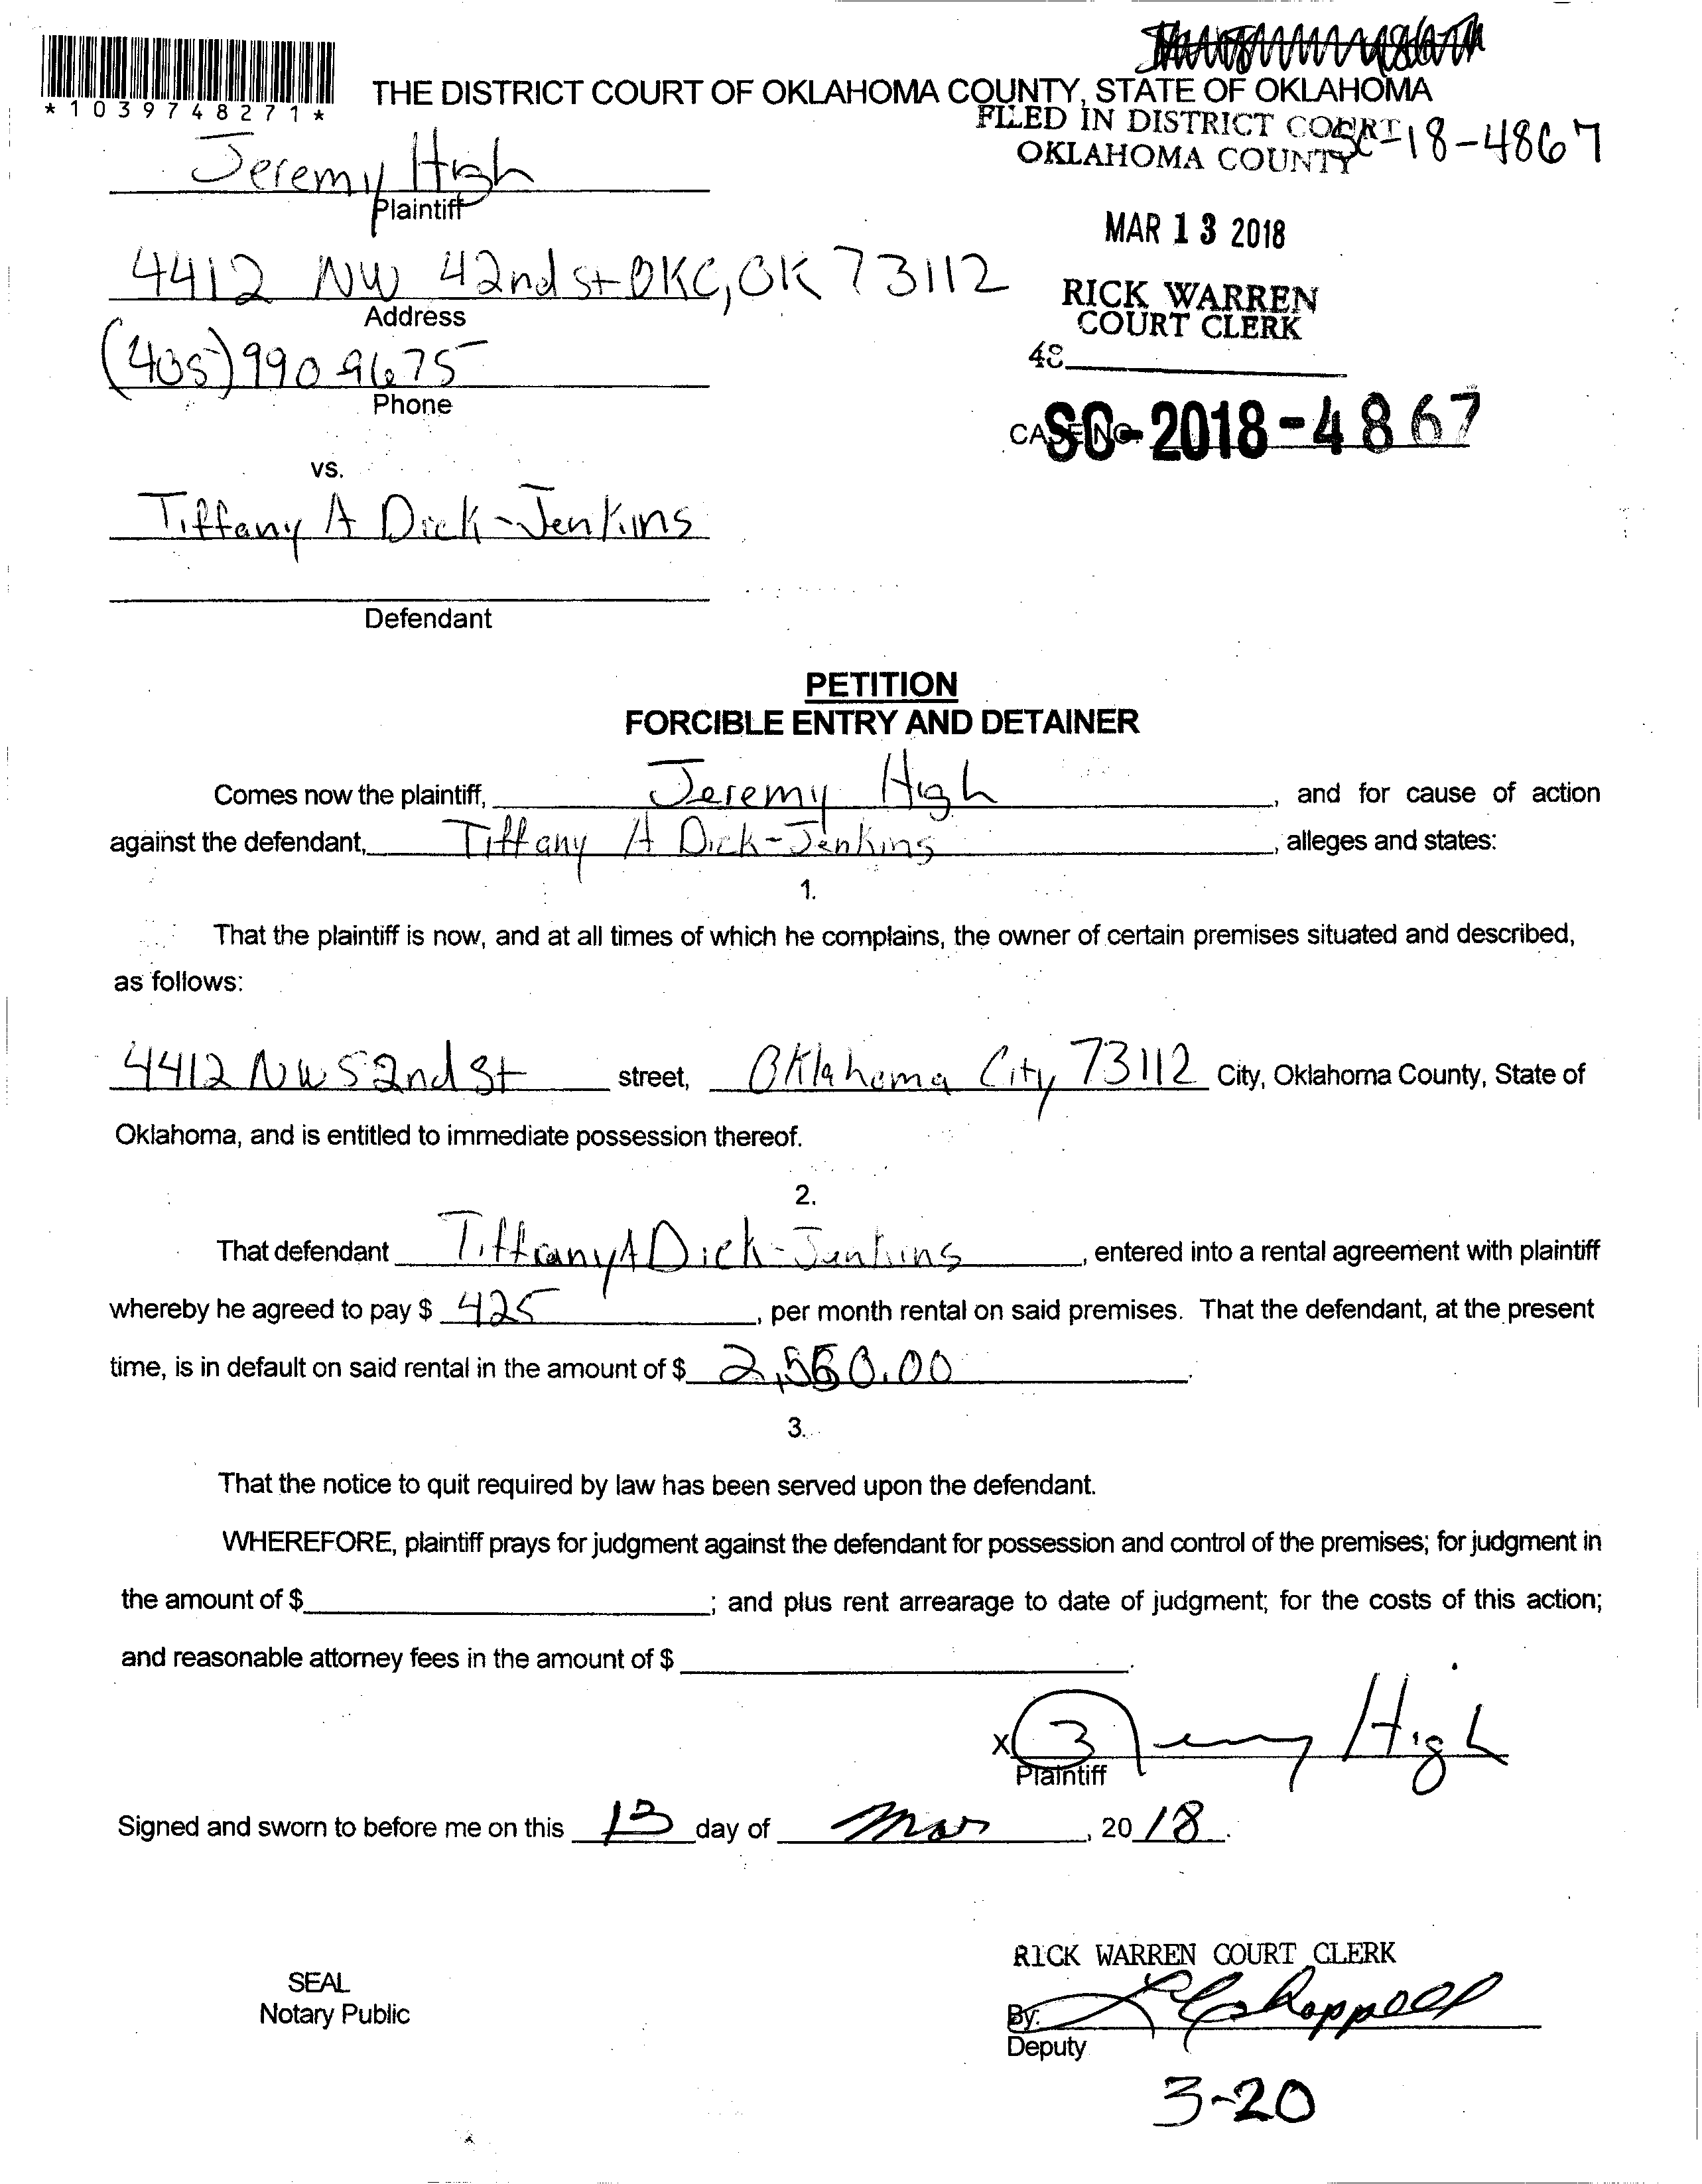 *1039748271*
THE DISTRICT COURT OF OKLAHOMA COUNTY, STATE OF OKLAHOMA
FILED IN DISTRICT COURT
OKLAHOMA COUNTY
SC-18-4867
Jeremy High
Plaintiff
MAR 13 2018
4412 NW 42nd st OKC, OK 73112
Address
RICK WARREN
COURT CLERK
(405) 990 9675
48
Phone
CASE NO.
SC-2018-4867
vs.
Tiffany A Dick-Jenkins
Defendant
PETITION
FORCIBLE ENTRY AND DETAINER
Comes now the plaintiff, Jeremy High, and for cause of action
against the defendant, Tiffany A Dick-Jenkins, alleges and states:
1.
That the plaintiff is now, and at all times of which he complains, the owner of certain premises situated and described,
as follows:
4412 NW 52nd St street, Oklahoma City 73112 City, Oklahoma County, State of
Oklahoma, and is entitled to immediate possession thereof.
2.
That defendant Tiffany A Dick-Jenkins, entered into a rental agreement with plaintiff
whereby he agreed to pay $ 425, per month rental on said premises. That the defendant, at the present
time, is in default on said rental in the amount of $ 2,550.00.
3.
That the notice to quit required by law has been served upon the defendant.
WHEREFORE, plaintiff prays for judgment against the defendant for possession and control of the premises; for judgment in
the amount of $; and plus rent arrearage to date of judgment; for the costs of this action;
and reasonable attorney fees in the amount of $.
X Jeremy High
Plaintiff
Signed and sworn to before me on this 13 day of Mar, 2018.
RICK WARREN COURT CLERK
SEAL
Notary Public
By:
Deputy
3-20